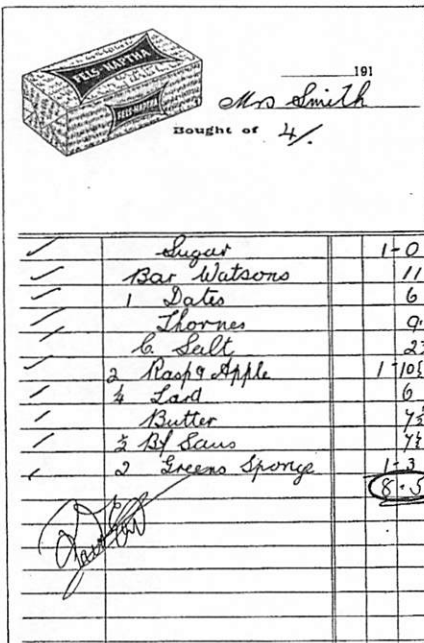 FELS-NAPTHA
FELS-NAPTHA
191
Mrs Smith
Bought of 4/.
Sugar 1-0
Bar Watsons 11
1 Dates 6
Thornes 9
C. Salt 2
2 Rasp & Apple 1-10½
¼ Lard 6
Butter 7½
½ Bf Saus 7½
2 Greens Sponge 1-3
8-5